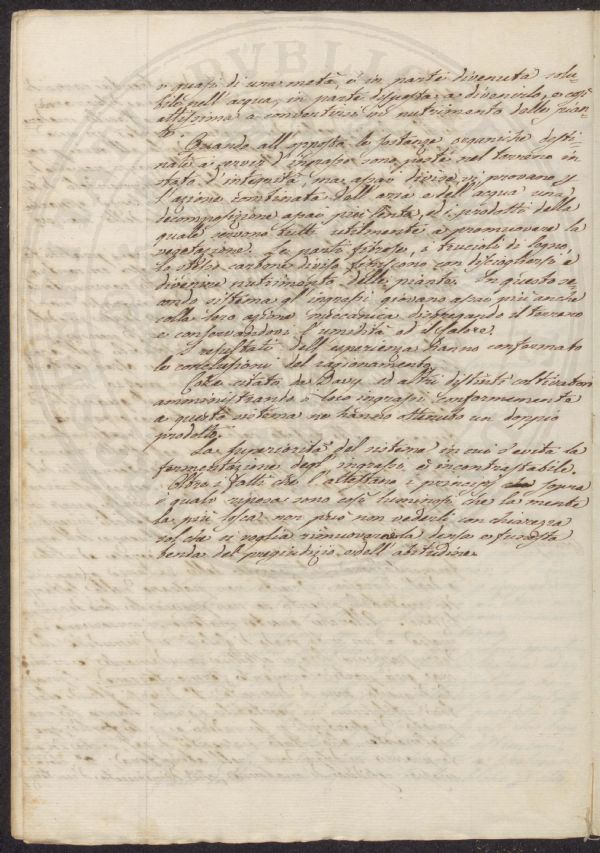 o quasi di una metà, è in parte divenuta solu-
bile nell'acqua, in parte disposta a divenirlo, e così
attissima a convertirsi in nutrimento delle pian-
te.
Quando all'opposto le sostanze organiche desti-
nate a servir d'ingrasso sono poste nel terreno in
stato d'integrità, ma assai divise vi provano
l'azione combinata dell'aria e dell'acqua una
decomposizione assai più lenta, ed i prodotti della
quale servono tutti utilmente a promuovere la
vegetazione. Le parti fibrose, i trucioli di legno,
lo stesso carbone diviso finiscono con disciogliersi e
divenire nutrimento delle piante. In questo se-
condo sistema gl'ingrassi giovano assai più anche
colla loro azione meccanica disgregando il terreno
e conservandovi l'umidità ed il calore.
I resultati dell'esperienza hanno confermato
le conclusioni del ragionamento.
Coke citato da Davy ed altri distinti coltivatori
amministrando i loro ingrassi conformemente
a questo sistema ne hanno ottenuto un doppio
prodotto.
La superiorità del sistema in cui s'evita la
fermentazione degl'ingrassi è incontrastabile.
Oltre i fatti che l'attestano i principj sopra
i quali riposa sono così luminosi che la mente
la più losca non può non vederli con chiarezza
sol che si voglia rimuovere la densa e funesta
benda del pregiudizio e dell'abitudine.